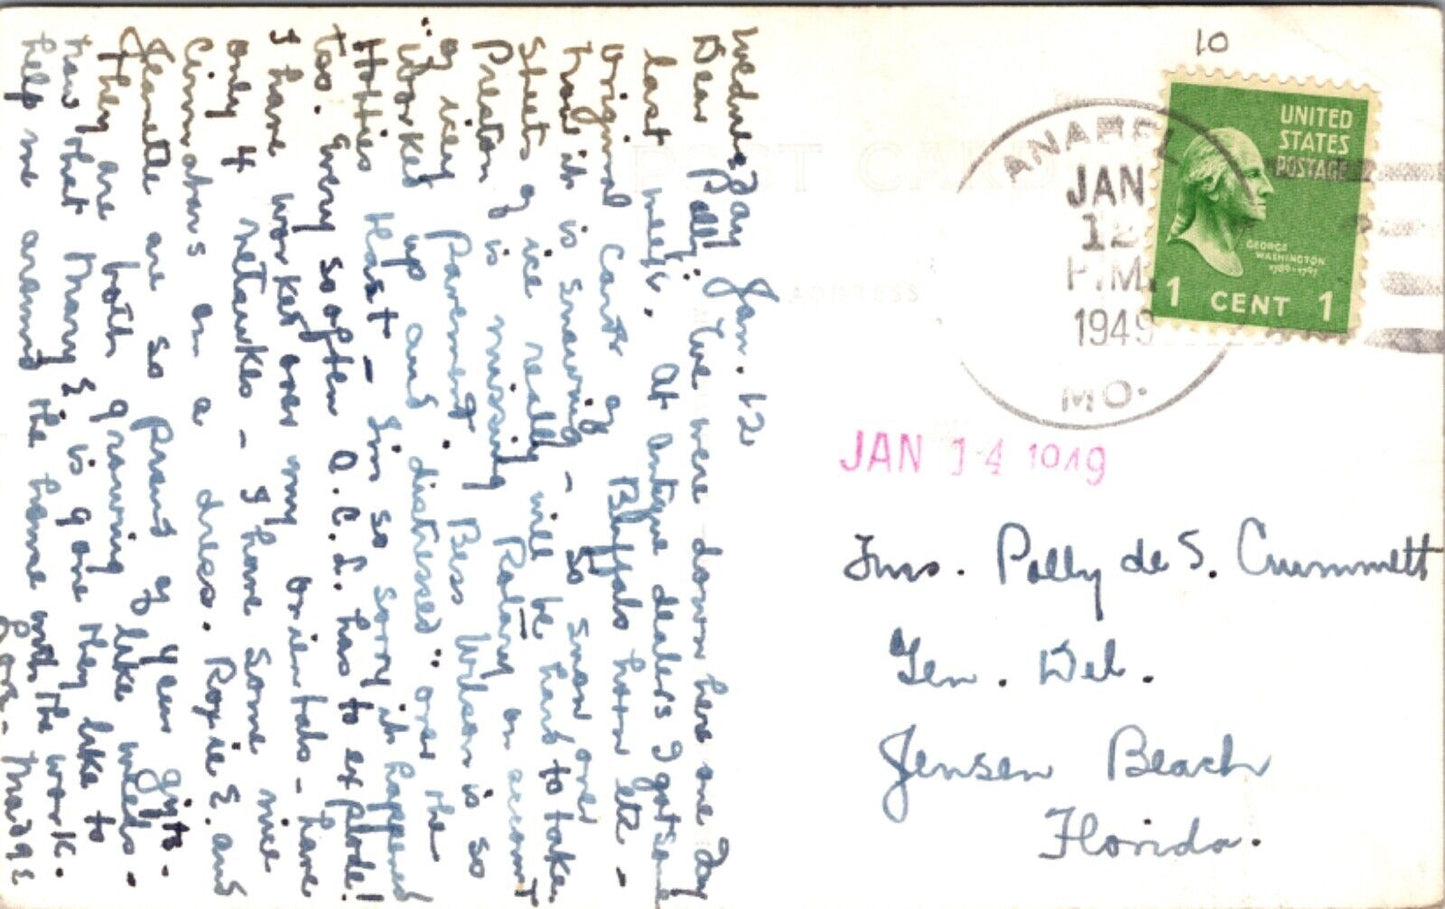 Wednesday Jan. 12
Dear Polly: We were down here one Day
last week. At antique dealers I got some
original cards of Buffalo horn etc -
how it is snowing - so snow over
sheets of ice really will be hard to take.
Preston is missing Rotary on account
of icy pavement. Bess Wilson is so
worked up and distressed over the
Hotties Hast - Im so sorry it happened
too. Every so often O.C.L. has to explode!
I have worked over my orientals - have
only 4 netsukes - I have some nice
Cinnabars on a dress. Roxie E. and
Jeanette are so proud of your gifts -
They are both growing like weeds -
now that Mary E is gone they like to
help me around the home with the work.
Love - Madge
10
POST CARD
ADDRESS
UNITED
STATES
POSTAGE
GEORGE
WASHINGTON
1789-1797
1 CENT 1
ANABEL
JAN
12
P.M.
1949
MO.
JAN 14 1949
Mrs. Polly de S. Crummett
Gen. Del.
Jensen Beach
Florida.